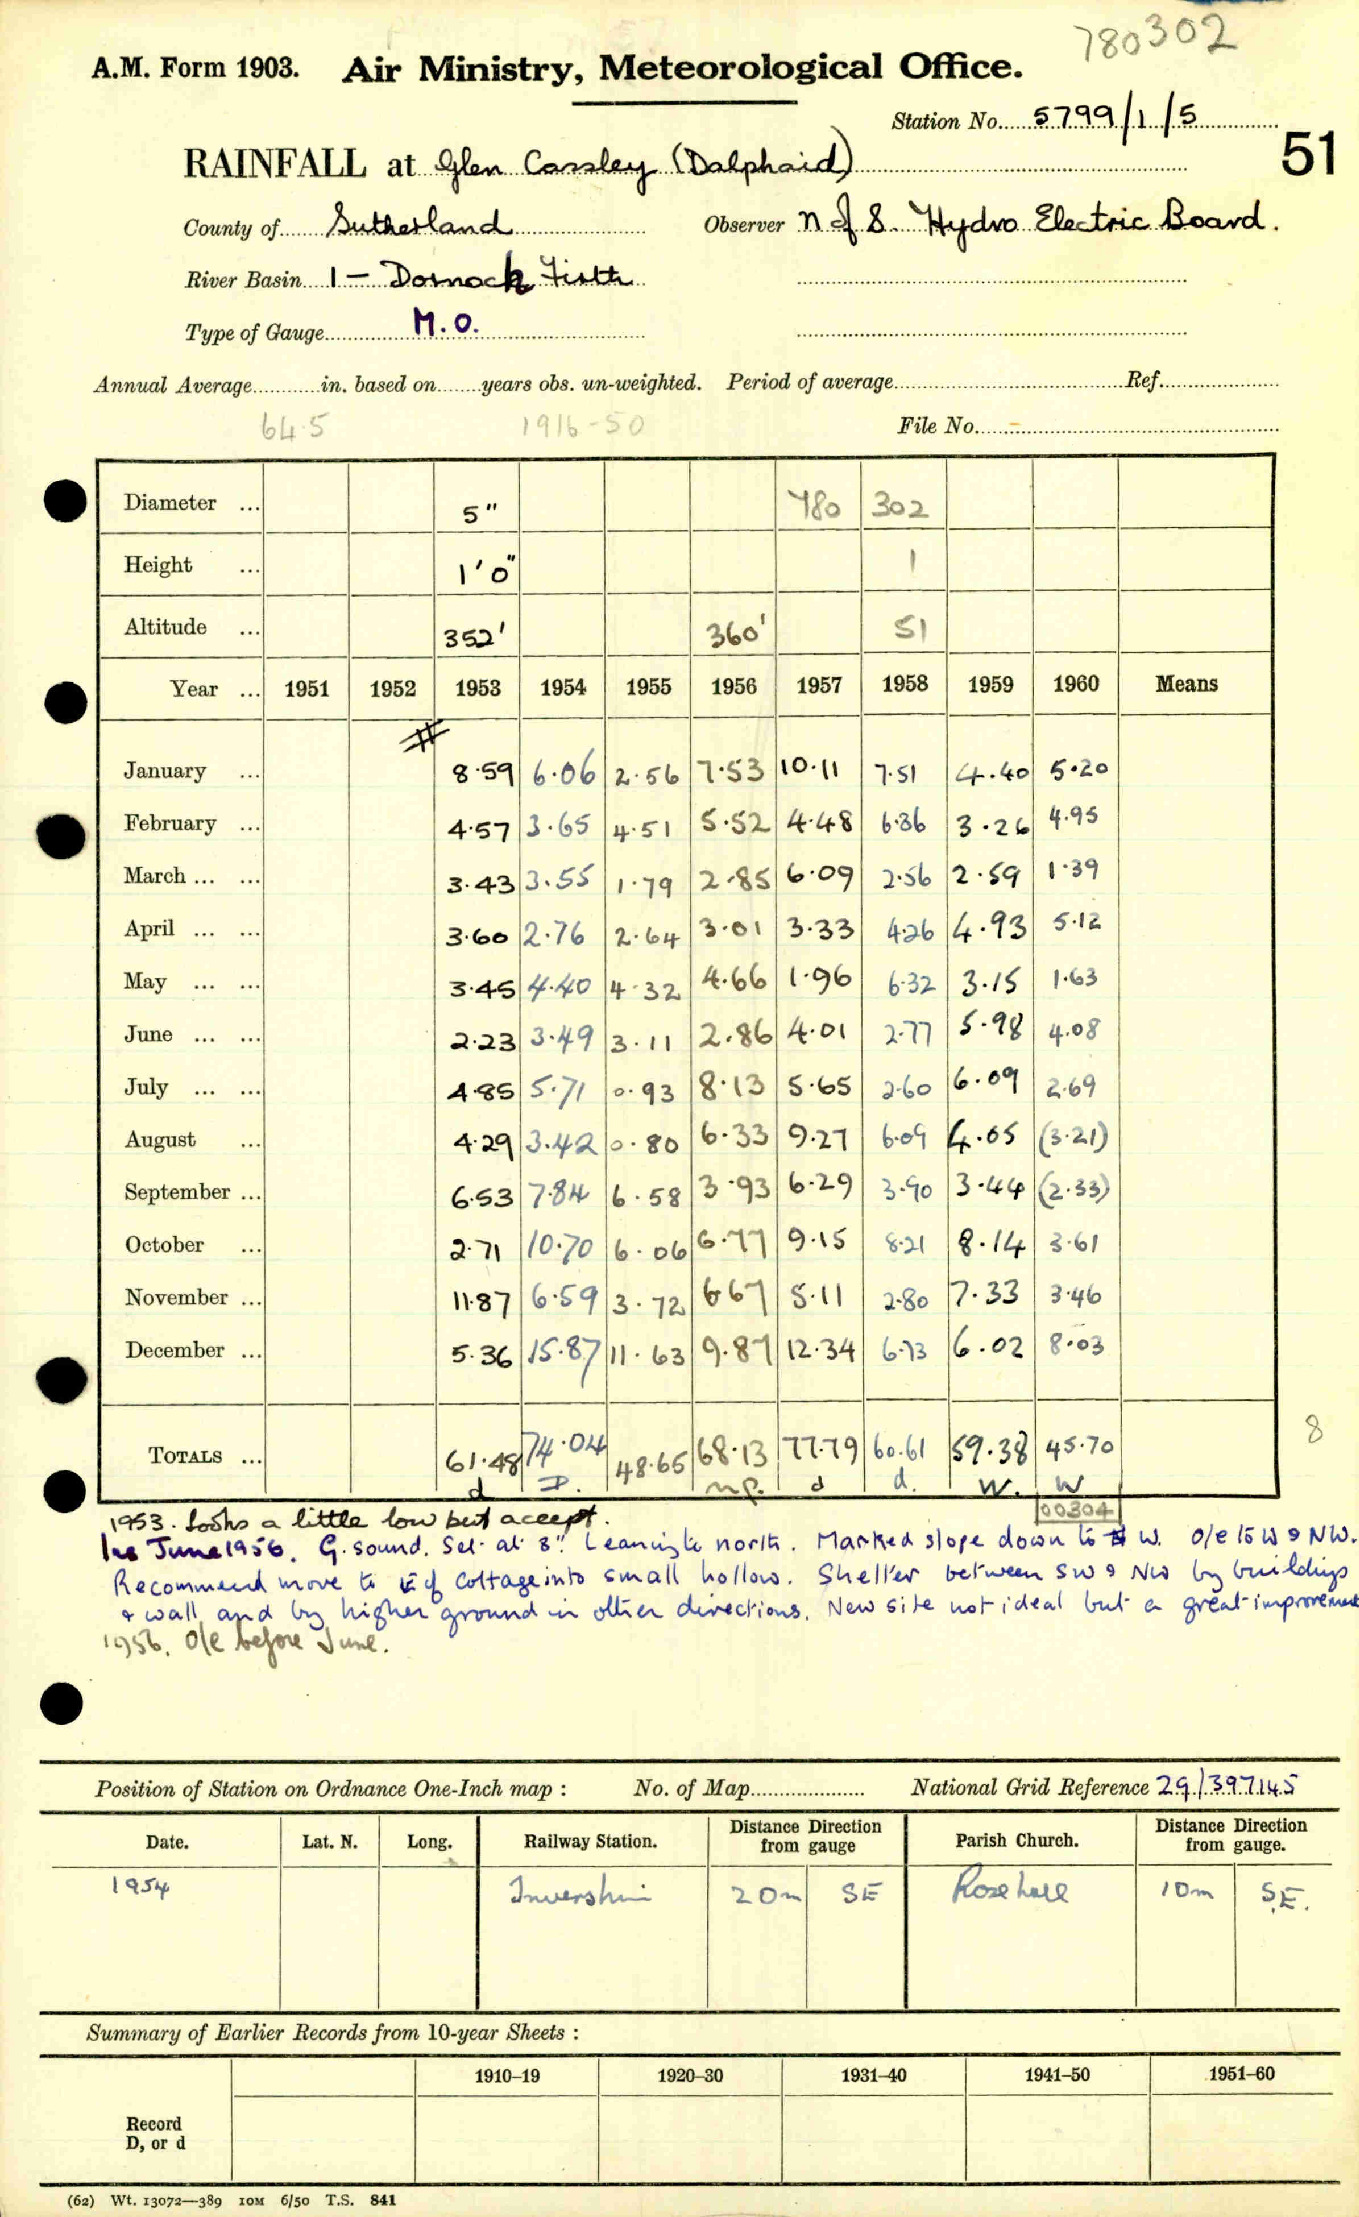 780302
A.M. Form 1903. Air Ministry, Meteorological Office.
Station No. 5799/1/5
51
RAINFALL at Glen Cassley (Dalphaid)
County of Sutherland Observer N of S. Hydro Electric Board.
River Basin 1 — Dornoch Firth
Type of Gauge M.O.
Annual Average in. based on years obs. un-weighted. Period of average Ref.
64.5 1916-50 File No.
Diameter ... 5" 780 302
Height ... 1'0" 1
Altitude ... 352' 360' 51
Year ... 1951 1952 1953 1954 1955 1956 1957 1958 1959 1960 Means
#
January ... 8.59 6.06 2.56 7.53 10.11 7.51 4.40 5.20
February ... 4.57 3.65 4.51 5.52 4.48 6.36 3.26 4.95
March ... ... 3.43 3.55 1.79 2.85 6.09 2.56 2.59 1.39
April ... ... 3.60 2.76 2.64 3.01 3.33 4.26 4.93 5.12
May ... ... 3.45 4.40 4.32 4.66 1.96 6.32 3.15 1.63
June ... ... 2.23 3.49 3.11 2.86 4.01 2.77 5.98 4.08
July ... ... 4.85 5.71 0.93 8.13 5.65 2.60 6.09 2.69
August ... 4.29 3.42 0.80 6.33 9.27 6.09 4.05 (3.21)
September ... 6.53 7.84 6.58 3.93 6.29 3.90 3.44 (2.33)
October ... 2.71 10.70 6.06 6.77 9.15 8.21 8.14 3.61
November ... 11.87 6.59 3.72 6.67 5.11 2.80 7.33 3.46
December ... 5.36 15.87 11.63 9.87 12.34 6.73 6.02 8.03
TOTALS ... 61.48 74.04 48.65 68.13 77.79 60.61 59.38 45.70 8
d D. n.p. d d. W. W
00304
1953. Looks a little low but accept.
Ins June 1956. G. sound. Set at 8". Leaning to north. Marked slope down to W. O/e to W & NW.
Recommend move to E of Cottage into small hollow. Shelter between SW & NW by buildings
& wall and by higher ground in other directions. New site not ideal but a great improvement
1956. O/e before June.
Position of Station on Ordnance One-Inch map : No. of Map National Grid Reference 29/397145
Date. Lat. N. Long. Railway Station. Distance Direction from gauge Parish Church. Distance Direction from gauge.
1954 Invershin 20m SE Rosehall 10m S.E.
Summary of Earlier Records from 10-year Sheets :
1910–19 1920–30 1931–40 1941–50 1951–60
Record
D, or d
(62) Wt. 13072—389 10M 6/50 T.S. 841